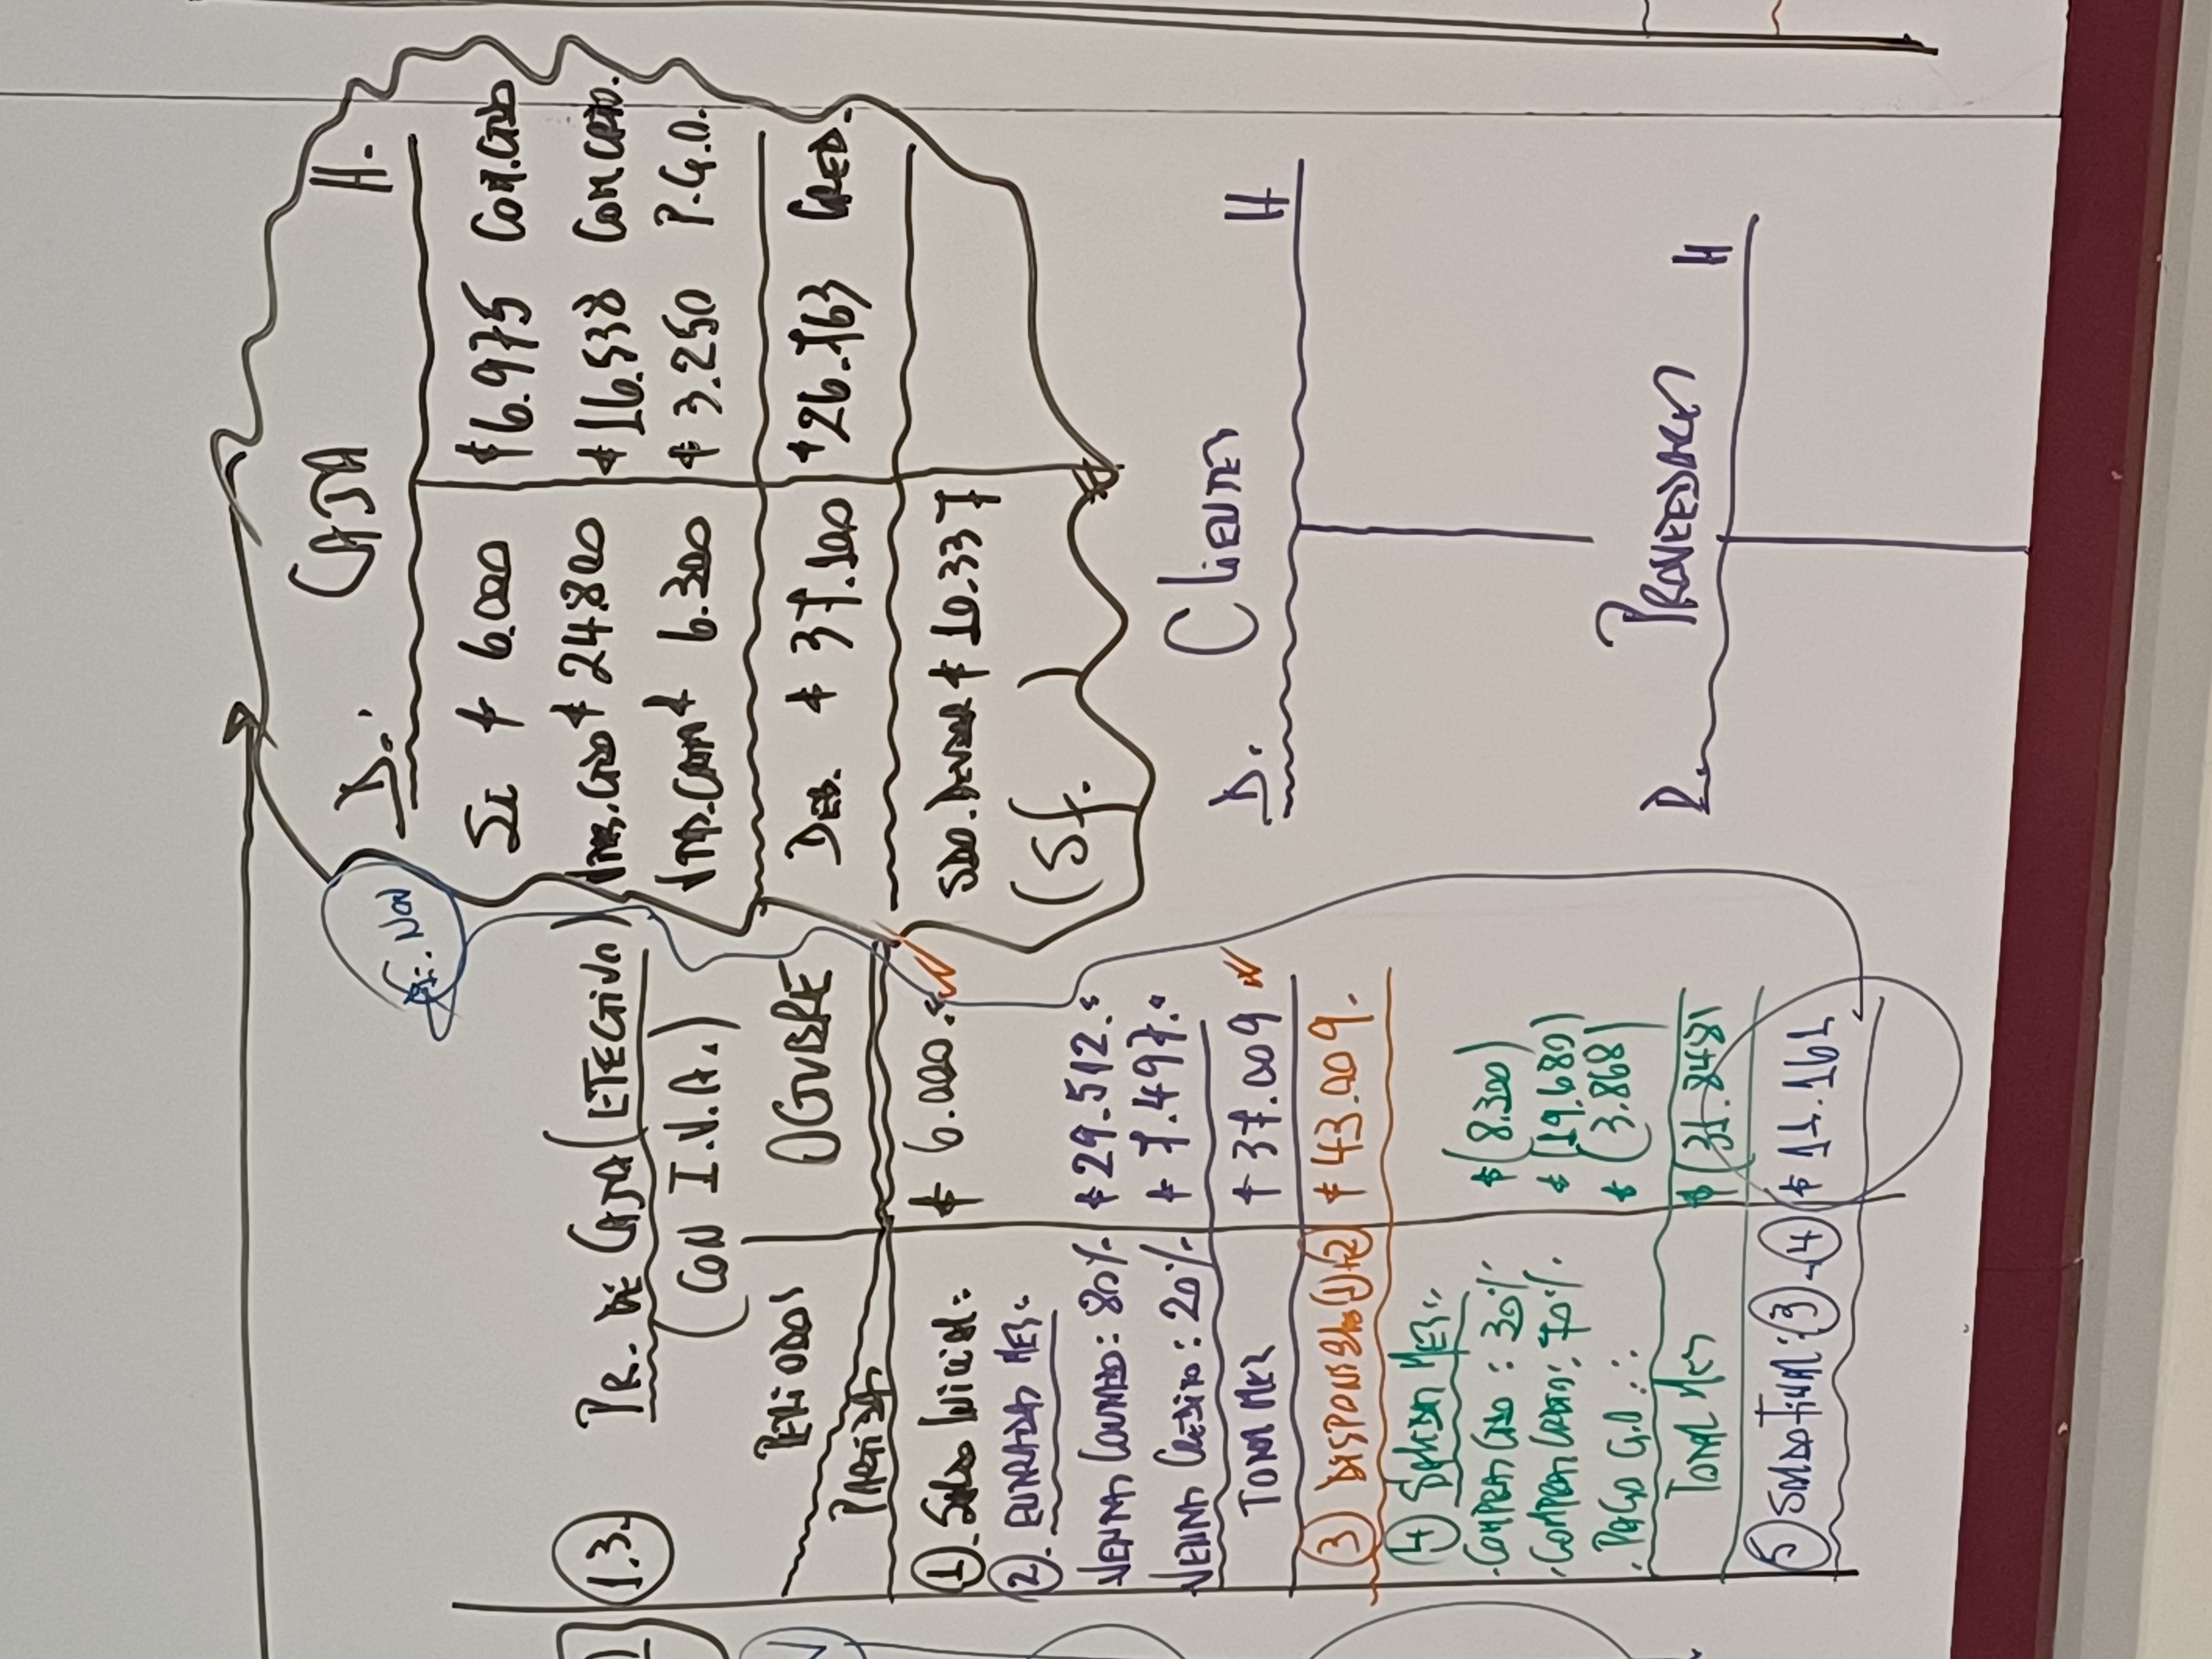 1.3. PR. DE CAJA (EFECTIVO)
(CON I.V.A.)
PERIODOS OCTUBRE
PARTIDAS
1. SALDO INICIAL: $ 6.000.
2. ENTRADAS MES:
VENTAS CONTADO: 80% $ 29.512.
VENTAS CREDITO: 20% $ 7.497.
TOTAL MES $ 37.009
3 DISPONIBLE (1)+(2) $ 43.009.
4 SALIDAS MES:
. COMPRAS CTDO: 30% $ (8.300)
. COMPRAS CREDTO: 70% $ (19.680)
. PAGO G.O.: $ (3.868)
TOTAL MES $ (31.848)
5 SALDO FINAL: 3 - 4 $ 11.161
F. NOV
D. CAJA H.
SI $ 6.000 $ 6.975 COM.CTDO
VTAS.CTDO $ 24.800 $ 16.538 COM CRTO.
$ 6.300 $ 3.250 P.G.O.
DEB. $ 37.100 $ 26.763 CRED.
SDO. DEUDOR $ 10.337
(Sf. )
D. CLIENTES H
D. PROVEEDORES H